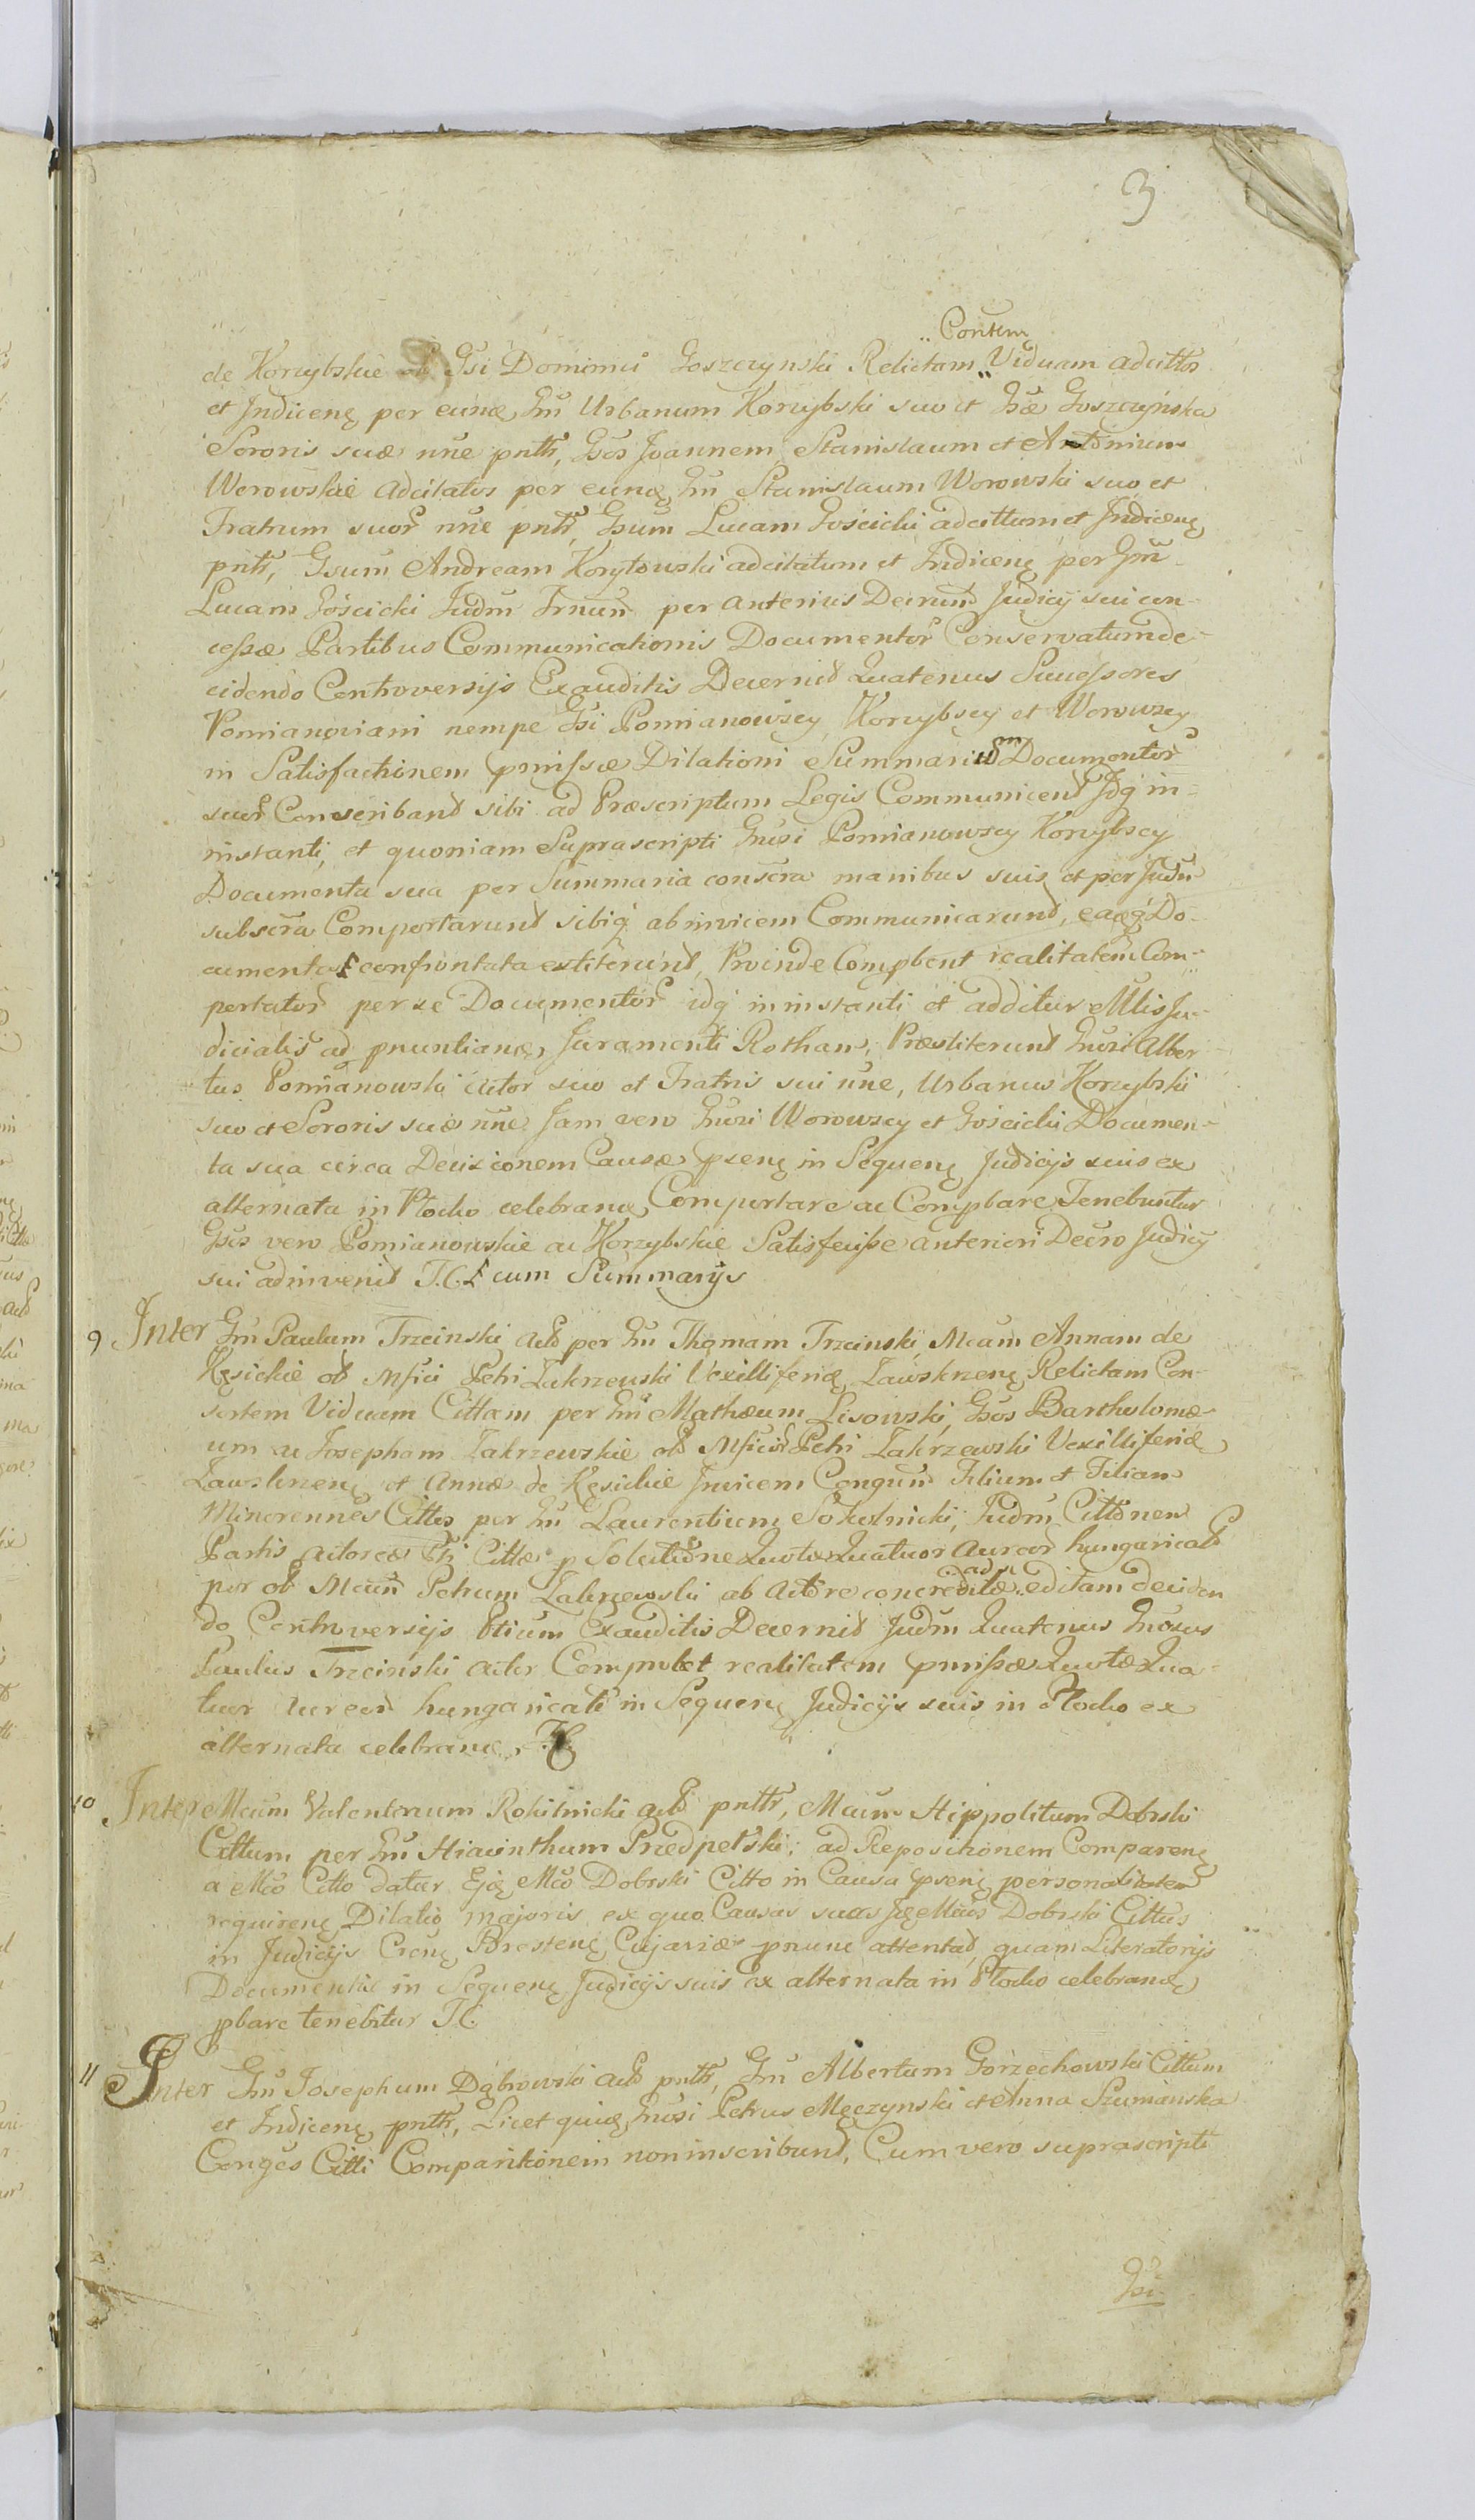 3
Consem
de Korzybskie ob Gsi Dominici Goszczynski Relictam Viduam adcittos
et Indiceng per eunq Gm Urbanum Korzybski suo et Gsæ Goszczynska
Sororis suæ nne pntt, Gsos Joannem Stanislaum et Antonium
Worowskie adcitatos per eunq Gm Stanislaum Worowski suo et
Fratrum suor nne pntt, Gsum Lucam Gościcki adcittum et Indiceng
pntt, Gsum Andream Korytowski adcitatum et Indiceng per Gm
Lucam Gościcki Judm Trnun per anterius Decrum Judicij sui con-
cessæ Partibus Communicationis Documentor Conservatum de-
cidendo Controversijs Exauditis Decernit Quatenus Successores
Pomianoviani nempe Gsi Pomianowscy, Korzybscy et Worowscy
in Satisfactionem pmissæ Dilationi Summarium Documentor
suor Conscribant sibi ad Præscriptum Legis Communicent Idq in-
instanti, et quoniam Suprascripti Gnosi Pomianowscy Korzybscy
Documenta sua per Summaria conscra manibus suis et per Judm
subscra Comportarunt sibiq abinvicem Communicarunt, eaqq Do-
cumenta confrontata extiterunt, Proinde Compbent realitatem Com-
portator per se Documentor idq in instanti et additur Mlis Ju-
dicialis ad pnuntianq Juramenti Rotham, Præstiterunt Gnosi Alber
tus Pomianowski actor suo et Fratris sui nne, Urbanus Korzybski
suo et Sororis suæ nne Jam vero Gnosi Worowscy et Gościcki Documen-
ta sua circa Decisionem Causæ pseng in Sequeng Judicijs suis ex
alternata in Plocko celebranq Comportare ac Compbare Tenebuntur
Gsos vero Pomianowskie ac Korzybskie Satisfecisse anteriori Decro Judicij
sui adinvenit T.C. cum Summarijs
9 Inter Gm Paulum Trzcinski act per Gm Thomam Trzcinski, Mcam Annam de
Kęsickie ob Mfici Petri Zakrzewski Vexilliferiq Zawskrzeng Relictam Con-
sortem Viduam Cittam per Gm Mathæum Lisowski, Gsos Bartholomæ-
um ac Josepham Zakrzewskie ob Mfici Petri Zakrzewski Vexilliferiæ
Zawskrzeng et Annæ de Kęsickie Invicem Congum Filium et Filiam
Minorennes Cittos per Gm Laurentium Sokolnicki, Judm Cittonem
Partis Actoreæ Pti Cittæ p Solutione Quotæ Quatuor Aureor hungaricali
per ob Mcum Petrum Zakrzewski ab Actore concreditæ adn editam deciden
do Controversijs Ptium Exauditis Decernit Judm Quatenus Gnosus
Paulus Trzcinski actor Comprobet realitatem pmissæ Quotæ Qua-
tuor Aureor hungaricali in Sequeng Judicijs suis in Plocko ex
alternata celebranq T.C.
10 Inter Mcum Valentinum Rokitnicki act pntt, Mcum Hippolitum Dobrski
Cittum per Gm Hiacinthum Przedpełski; ad Repositionem Compareng
a Mco Citto datur Ejq Mco Dobrski Citto in Causa pseng personalitatem
requireng Dilatio majoris ex quo Causas suas Jq Mcus Dobrski Cittus
in Judicijs Creng Bresteng Cujaviæ pnunc attentat, quam Literatorijs
Documentis in Sequeng Judicijs suis ex alternata in Plocko celebranq
pbare tenebitur T.C.
11 Inter Gm Josephum Dąbrowski act pntt, Gm Albertum Gorzechowski Cittum
et Indiceng pntt, Licet quiq Gnosi Petrus Męczynski et Anna Szumanska
Conges Citti Comparitionem non inscribunt, Cum vero suprascripti
Gsi